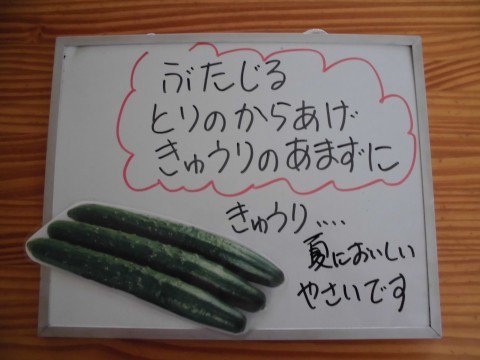 ぶたじる
とりのからあげ
きゅうりのあまずに
きゅうり....
夏においしい
やさいです